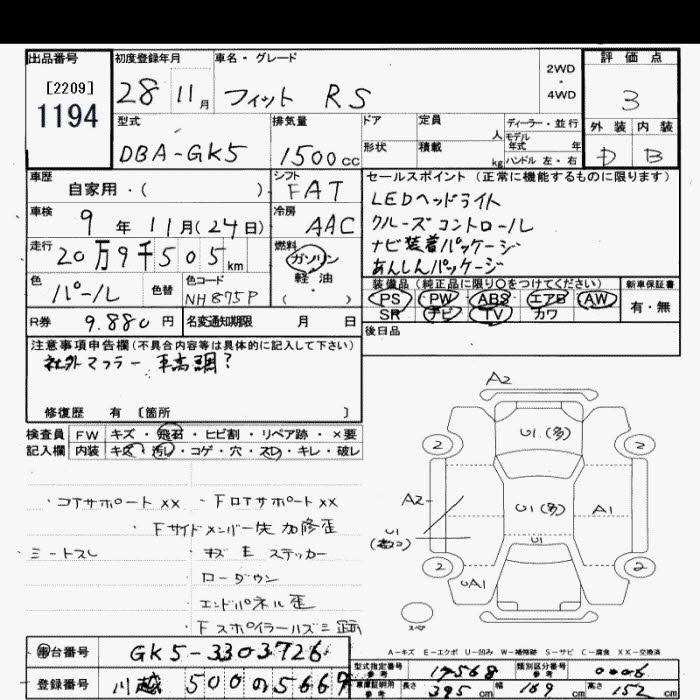 出品番号
[2209]
1194
初度登録年月
28 11月
車名・グレード
フィット RS
2WD
・
4WD
評価点
3
外装 内装
D B
型式
DBA-GK5
排気量
1500cc
ドア
形状
定員
人
積載
kg
ディーラー・並行
モデル年式 年
ハンドル 左・右
車歴
自家用・( )
シフト
FAT
車検
9年11月(24日)
冷房
AAC
走行
20万9千505km
燃料
ガソリン
軽油
( )
色
パール
色替
色コード
NH875P
R券
9.880円
名変通知期限 月 日
セールスポイント(正常に機能するものに限ります)
LEDヘッドライト
クルーズコントロール
ナビ装着パッケージ
あんしんパッケージ
装備品(純正品に限り○をつけてください)
PS PW ABS エアB AW
SR ナビ TV カワ
新車保証書
有・無
後日品
注意事項申告欄(不具合内容等は具体的に記入して下さい)
社外マフラー 車高調?
修復歴 有 〔箇所 〕
検査員記入欄
FW キズ・飛石・ヒビ割・リペア跡・×要
内装 キズ・汚レ・コゲ・穴・スレ・キレ・破レ
・コアサポートxx ・FロアサポートXX
・Fサイドメンバー先 加修歪
・ミートスレ
・キズ E ステッカー
・ローダウン
・エンドパネル歪
・Fスポイラールズミ
A2
U1(多)
2
2
A2
U1(多)
A1
U1
U1
2
2
UA1
スペア
A-キズ E-エクボ U-凹み W-補修跡 S-サビ C-腐食 XX-交換済
車台番号
GK5-3303726
登録番号
川越 500 の 5669
型式指定番号
参考
17568
類別区分番号
参考
0006
車庫証明用
参考
長さ 395cm 幅 169cm 高さ 152cm